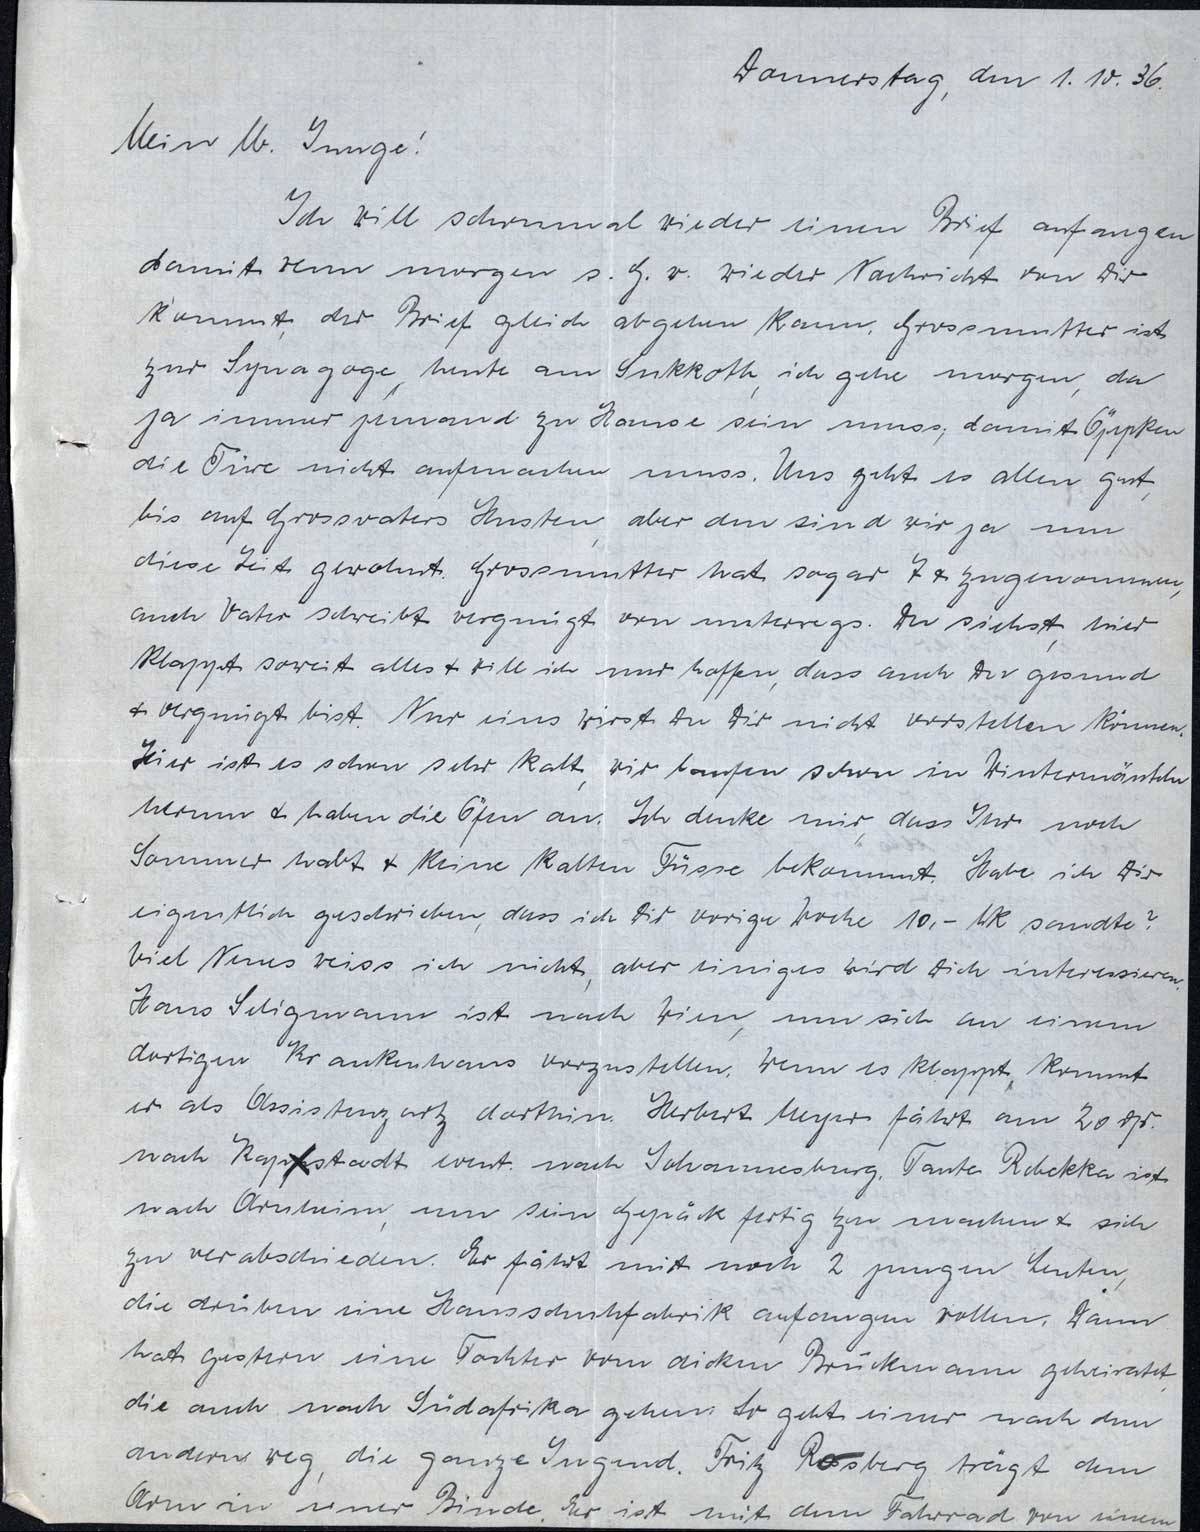 Donnerstag, den 1. 10. 36.
Mein lb. Junge!
Ich will schonmal wieder einen Brief anfangen
damit wenn morgen s. G. w. wieder Nachricht von Dir
kommt, der Brief gleich abgehen kann. Grossmutter ist
zur Synagoge, heute am Sukkoth, ich gehe morgen, da
ja immer jemand zu Hause sein muss, damit Öppken
die Türe nicht aufmachen muss. Uns geht es allen gut,
bis auf Grossvaters Husten, aber den sind wir ja um
diese Zeit gewohnt. Grossmutter hat sogar 7 zugenommen,
auch Vater schreibt vergnügt von unterwegs. Du siehst, hier
klappt soweit alles & will ich nur hoffen, dass auch Du gesund
& vergnügt bist. Nur eins wirst Du Dir nicht vorstellen können.
Hier ist es schon sehr kalt, wir laufen schon in Wintermänteln
herum & haben die Öfen an. Ich denke mir, dass Ihr noch
Sommer habt & keine kalten Füsse bekommt. Habe ich Dir
eigentlich geschrieben, dass ich Dir vorige Woche 10,- Mk sandte?
Viel Neues weiss ich nicht, aber einiges wird Dich interessieren.
Hans Seligmann ist nach Wien, um sich an einem
dortigen Krankenhaus vorzustellen. Wenn es klappt, kommt
er als Assistenzartz dorthin. Herbert Meyer fährt am 20 ds.
nach Kapstadt event. nach Johannesburg. Tante Rebekka ist
nach Arnheim, um sein Gepäck fertig zu machen & sich
zu verabschieden. Er fährt mit noch 2 jungen Leuten,
die drüben eine Hausschuhfabrik anfangen wollen. Dann
hat gestern eine Tochter vom dicken Brückmann geheiratet,
die auch nach Südafrika gehen. So geht einer nach dem
andern weg, die ganze Jugend. Fritz Rosberg trägt den
Arm in einer Binde. Er ist mit dem Fahrrad von einem